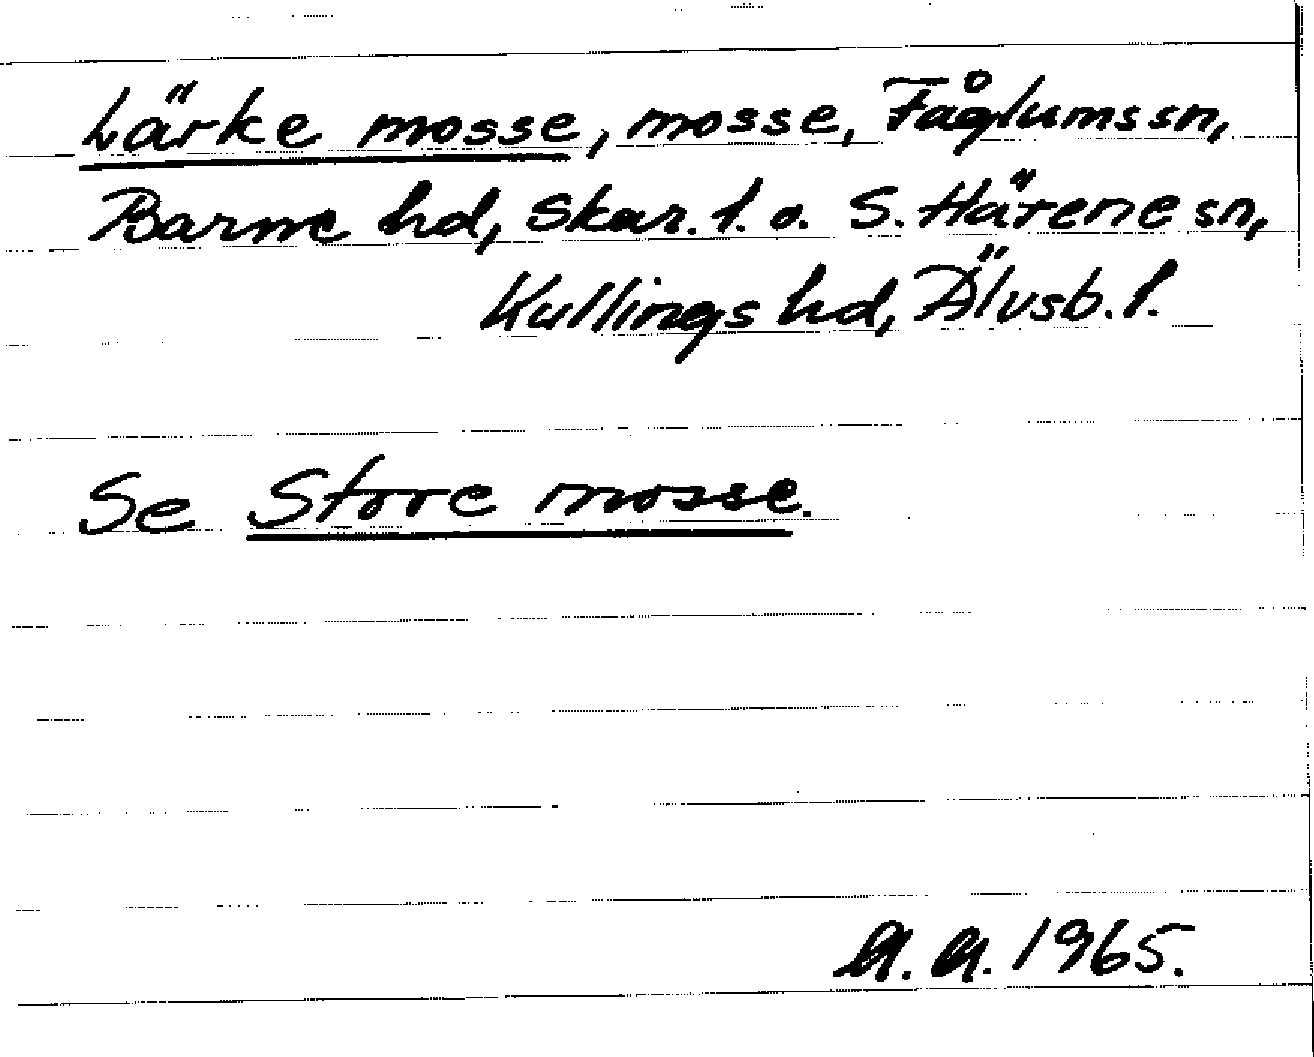 Lärke mosse, mosse, Fåglums sn,
Barne hd, Skar. l. o. S. Härene sn,
Kullings hd, Älvsb. l.
Se Store mosse.
A. A. 1965.